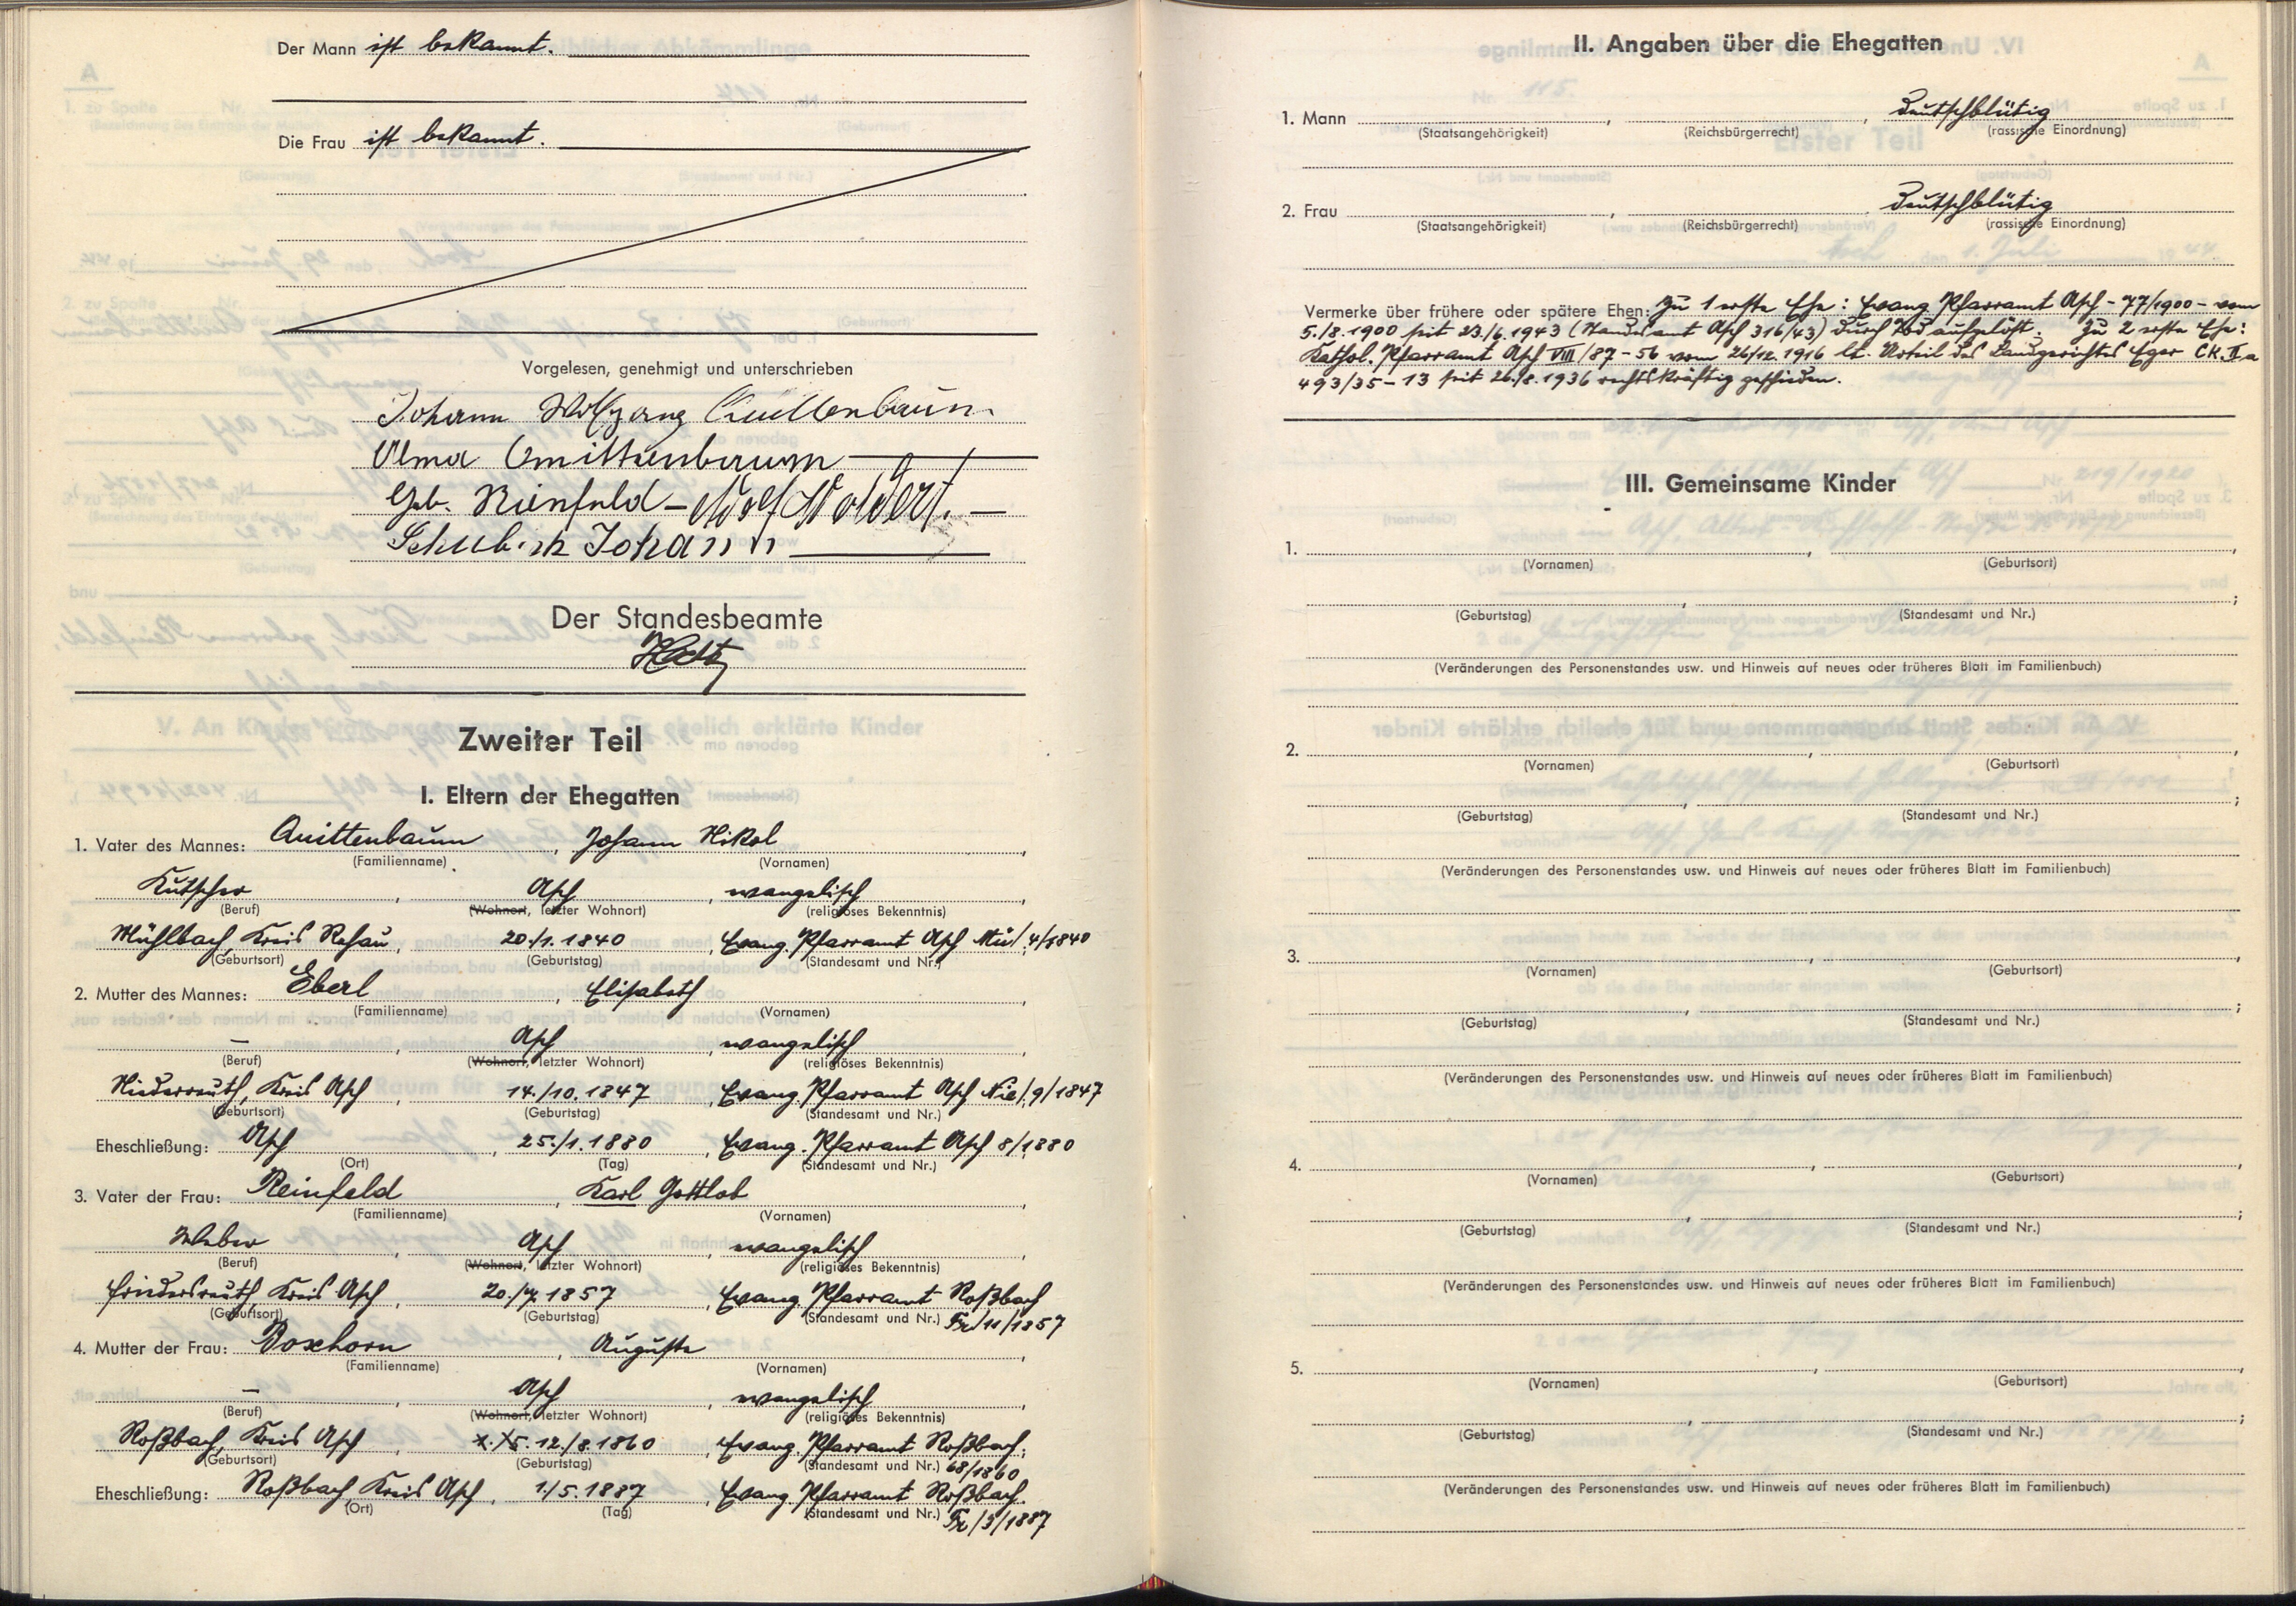 Der Mann ist bekannt.
Die Frau ist bekannt.
Vorgelesen, genehmigt und unterschrieben
Johann Wolfgang Quittenbaum
Alma Quittenbaum
geb. Reinfeld – Adolf Woldert.
Johann
Der Standesbeamte
Zweiter Teil
I. Eltern der Ehegatten
1. Vater des Mannes: Quittenbaum, Johann Nikol,
(Familienname) (Vornamen)
Kutscher, Asch, evangelisch,
(Beruf) (Wohnort, letzter Wohnort) (religiöses Bekenntnis)
Mühlbach, Kreis Rehau, 20./1.1840, Evang. Pfarramt Asch Mü/4/1840
(Geburtsort) (Geburtstag) (Standesamt und Nr.)
2. Mutter des Mannes: Eberl, Elisabeth,
(Familienname) (Vornamen)
–, Asch, evangelisch,
(Beruf) (Wohnort, letzter Wohnort) (religiöses Bekenntnis)
Niederreuth, Kreis Asch, 14./10.1847, Evang. Pfarramt Asch Nie/9/1847
(Geburtsort) (Geburtstag) (Standesamt und Nr.)
Eheschließung: Asch, 25./1.1880, Evang. Pfarramt Asch 8/1880
(Ort) (Tag) (Standesamt und Nr.)
3. Vater der Frau: Reinfeld, Karl Gottlob,
(Familienname) (Vornamen)
Weber, Asch, evangelisch,
(Beruf) (Wohnort, letzter Wohnort) (religiöses Bekenntnis)
Friedersreuth, Kreis Asch, 20./7.1857, Evang. Pfarramt Roßbach
(Geburtsort) (Geburtstag) (Standesamt und Nr.) Fr/11/1857
4. Mutter der Frau: Boxhorn, Auguste,
(Familienname) (Vornamen)
–, Asch, evangelisch,
(Beruf) (Wohnort, letzter Wohnort) (religiöses Bekenntnis)
Roßbach, Kreis Asch, 12./8.1860, Evang. Pfarramt Roßbach,
(Geburtsort) (Geburtstag) (Standesamt und Nr.) 68/1860
Eheschließung: Roßbach, Kreis Asch, 1./5.1887, Evang. Pfarramt Roßbach
(Ort) (Tag) (Standesamt und Nr.) Fr/3/1887
II. Angaben über die Ehegatten
1. Mann , , deutschblütig
(Staatsangehörigkeit) (Reichsbürgerrecht) (rassische Einordnung)
2. Frau , , deutschblütig
(Staatsangehörigkeit) (Reichsbürgerrecht) (rassische Einordnung)
Vermerke über frühere oder spätere Ehen: Zu 1 erste Ehe: Evang Pfarramt Asch – 77/1900 – vom
5./8.1900 seit 23./6.1943 (Standesamt Asch 316/43) durch Tod aufgelöst. Zu 2 erste Ehe:
Kathol. Pfarramt Asch VIII/87–56 vom 26/12.1916 lt. Urteil des Landgerichtes Eger CK.IIa
493/35–13 seit 26./8.1936 rechtskräftig geschieden.
III. Gemeinsame Kinder
1. , ,
(Vornamen) (Geburtsort)
, ;
(Geburtstag) (Standesamt und Nr.)
(Veränderungen des Personenstandes usw. und Hinweis auf neues oder früheres Blatt im Familienbuch)
2. , ,
(Vornamen) (Geburtsort)
, ;
(Geburtstag) (Standesamt und Nr.)
(Veränderungen des Personenstandes usw. und Hinweis auf neues oder früheres Blatt im Familienbuch)
3. , ,
(Vornamen) (Geburtsort)
, ;
(Geburtstag) (Standesamt und Nr.)
(Veränderungen des Personenstandes usw. und Hinweis auf neues oder früheres Blatt im Familienbuch)
4. , ,
(Vornamen) (Geburtsort)
, ;
(Geburtstag) (Standesamt und Nr.)
(Veränderungen des Personenstandes usw. und Hinweis auf neues oder früheres Blatt im Familienbuch)
5. , ,
(Vornamen) (Geburtsort)
, ;
(Geburtstag) (Standesamt und Nr.)
(Veränderungen des Personenstandes usw. und Hinweis auf neues oder früheres Blatt im Familienbuch)